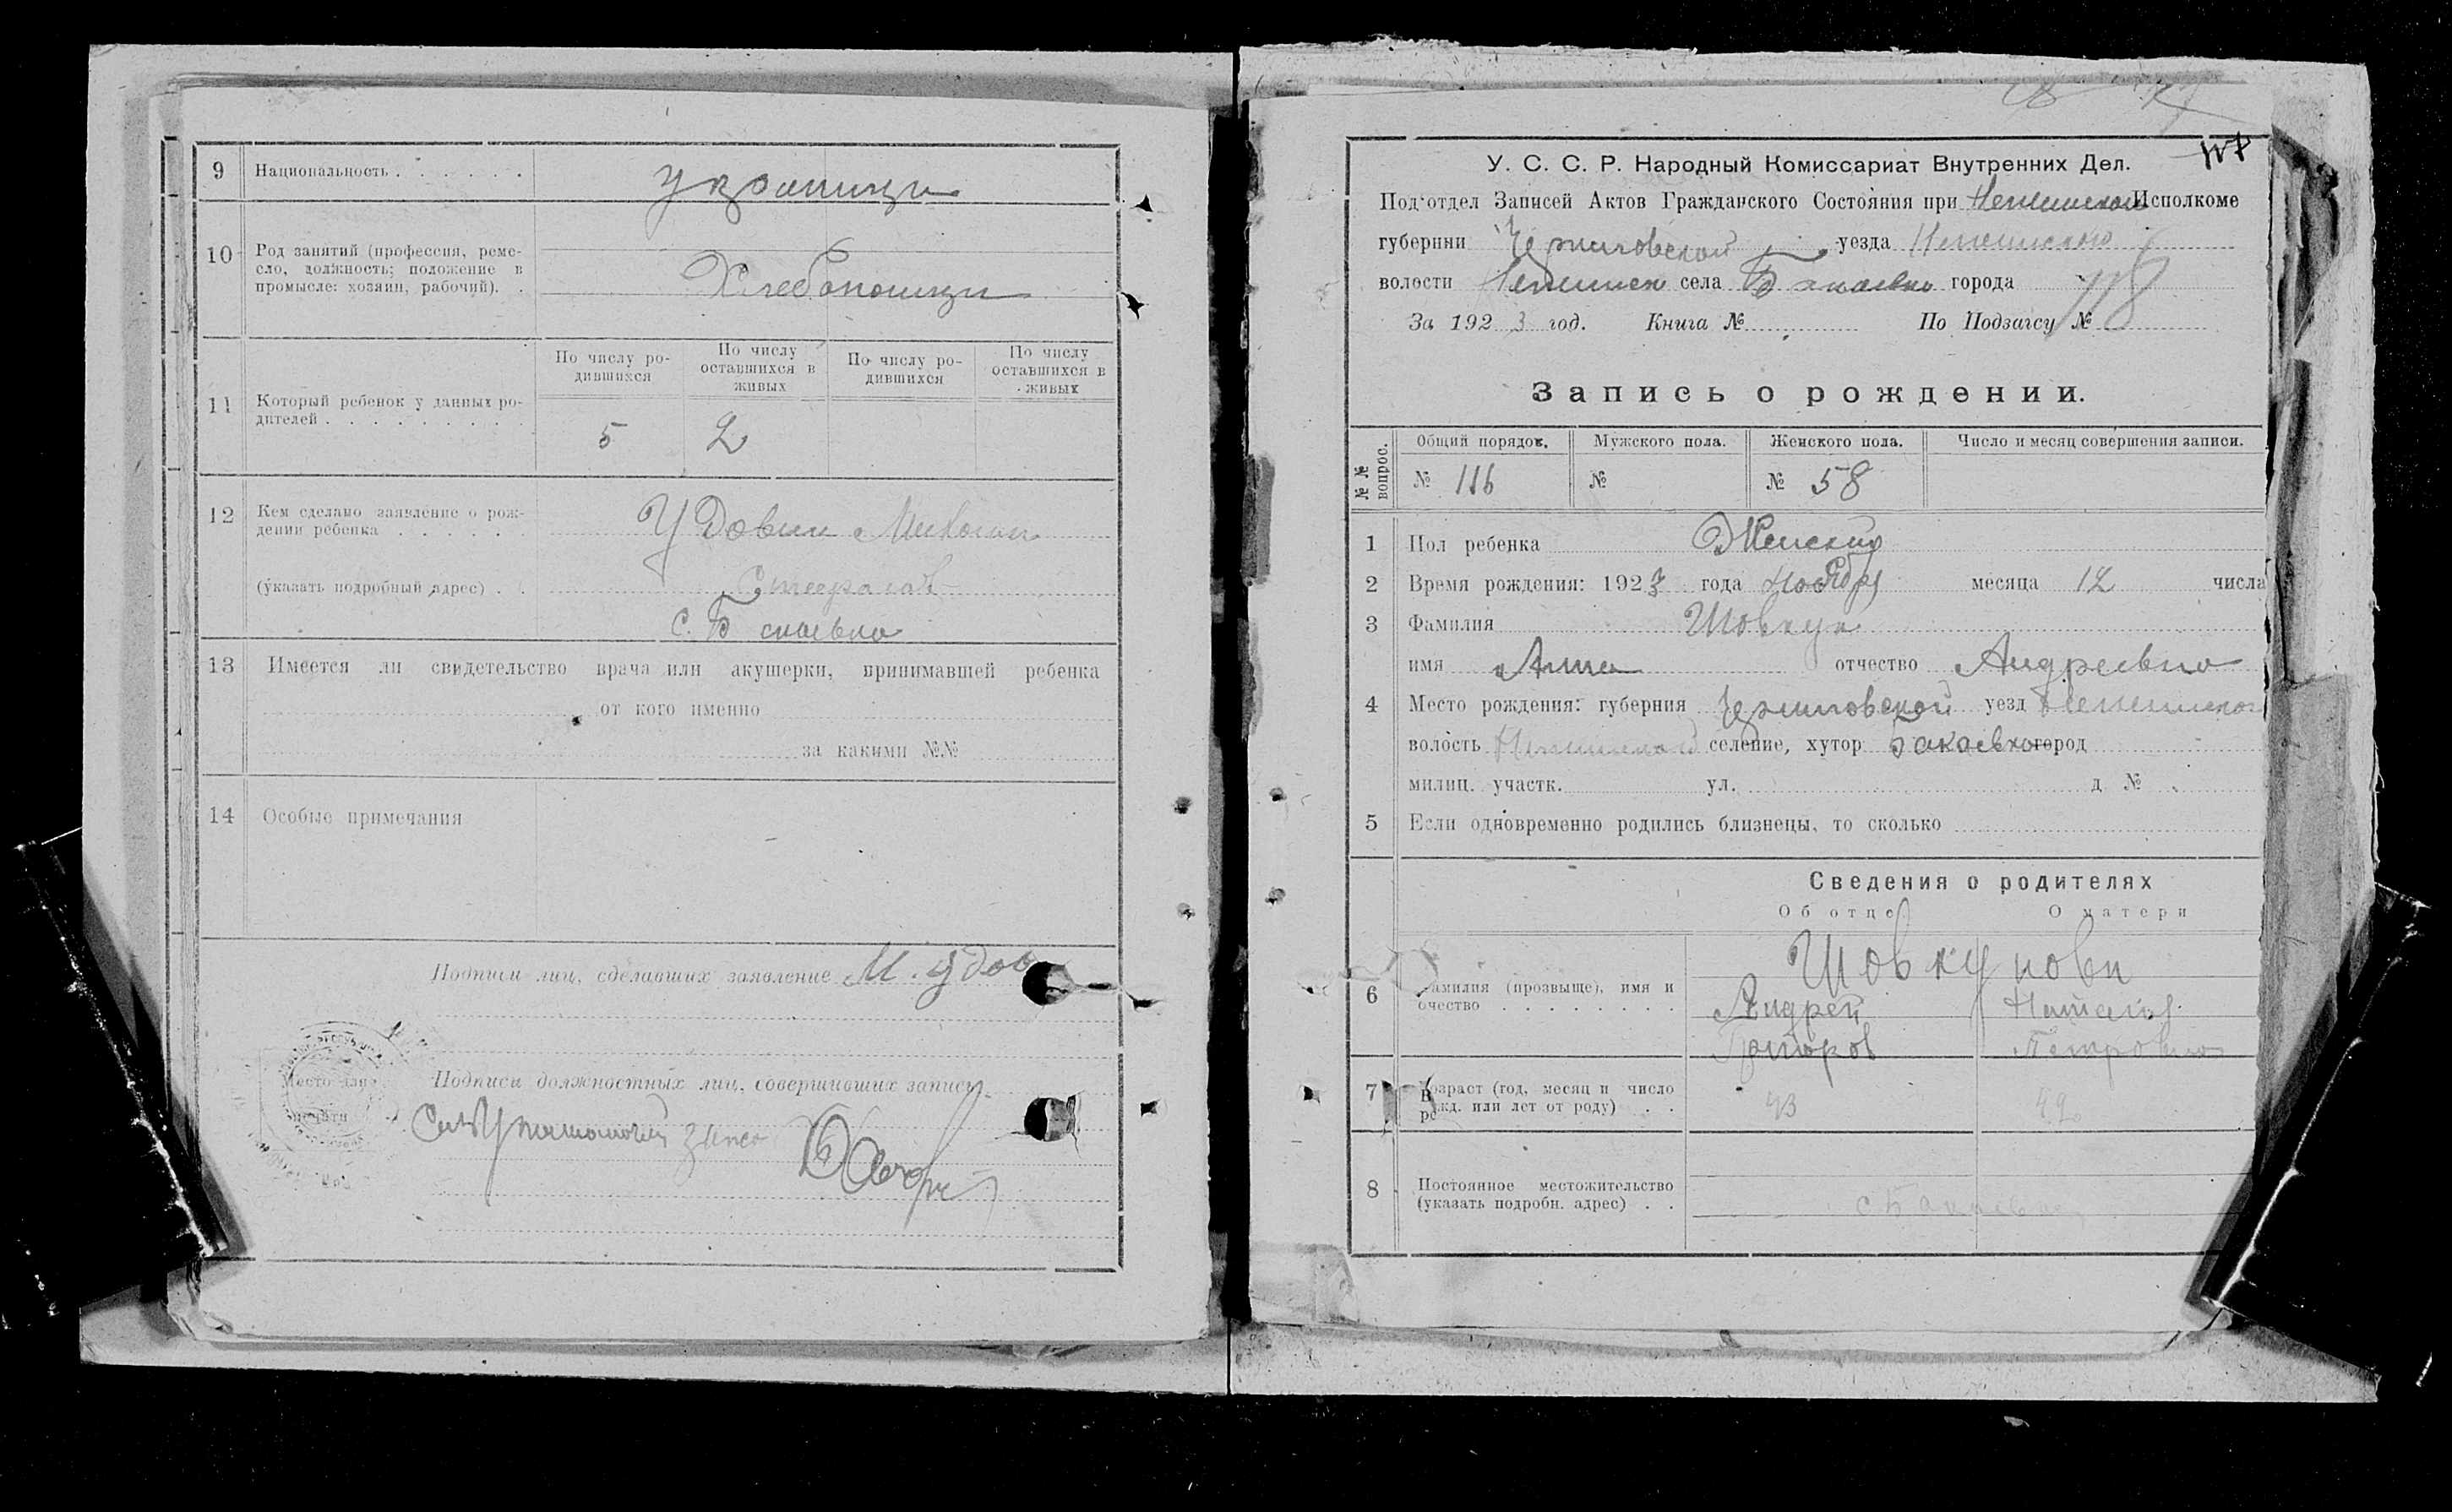 9 Национальность . . . . . .
украинци
10 Род занятий (профессия, реме-
сло, должность; положение в
промысле: хозяин, рабочий). .
Хлебопошци
11 Который ребенок у данных ро-
дителей . . . . . . . . .
По числу ро-
дившихся
По числу
оставшихся в
живых
По числу ро-
дившихся
По числу
оставшихся в
живых
5 2
12 Кем сделано заявление о рож-
дении ребенка . . . . . .
Удовин
(указать подробный адрес) . .
с. Бакаевка
13 Имеется ли свидетельство врача или акушерки, принимавшей ребенка
от кого именно
за какими №№
14 Особые примечания
Подписи лиц, сделавших заявление М. Удов
Место для
печати
Подписи должностных лиц, совершивших запись
У. С. С. Р. Народный Комиссариат Внутренних Дел.
Под‘отдел Записей Актов Гражданского Состояния при Нежинском Исполкоме
губернии Черниговской уезда Нежинского
волости Нежинск села Бакаевка города
За 1923 год. Книга № По Подзагсу № 118
Запись о рождении.
№№ вопрос.
Общий порядок. Мужского пола. Женского пола. Число и месяц совершения записи.
№ 116 № № 58
1 Пол ребенка Женский
2 Время рождения: 1923 года Ноября месяца 12 числа
3 Фамилия Шовкун
имя Анна отчество Андреевна
4 Место рождения: губерния Черниговской уезд Нежинской
волость Нежинской селение, хутор Бакаевка город
милиц. участк. ул. д №
5 Если одновременно родились близнецы, то сколько
Сведения о родителях
Об отце О матери
6 Фамилия (прозвыще), имя и
очество . . . . . . . .
Шовкунови
Андрей Наталія
Петровна
7 Возраст (год, месяц и число
рожд. или лет от роду) . .
43 42
8 Постоянное местожительство
(указать подробн. адрес) . .
с Бакаевка